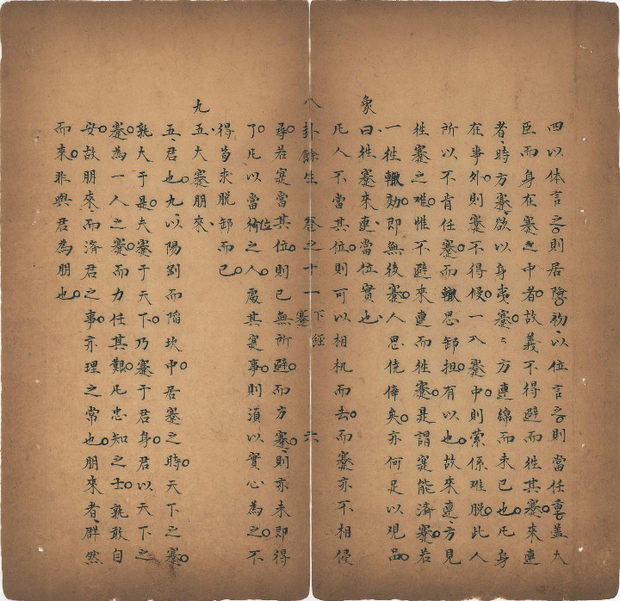 四以体言之則居陰初以位言之則當任重蓋大
臣而身在蹇之中者故義不得避而往其蹇來連
者時方蹇欲以身夷蹇〻方連綿而未已也凡身
在事外則蹇不得侵一入蹇中則縈係难脱此人
所以不肯任蹇而輙思卸担有以也故來連方見
往蹇之难惟不避來連而往蹇是謂寔能濟蹇若
一往輙効即無後蹇人思侥倖矣亦何足以覘品
象曰往蹇來連當位實也
凡人不當其位則可以相机而去而蹇亦不相侵
八卦餘生 卷之十一 下經 蹇 六
尋若寔當其位則已無所避而方蹇則亦未即得
了凡以當位之人處其寔事則須以實心為之不
得苟求脱卸而已
九五大蹇朋來
五君也九以陽剛而陷坎中居蹇之時天下之蹇
孰大于是夫蹇于天下乃蹇于君身君以天下之
蹇為一人之蹇而力任其艱凡忠知之士孰敢自
安故朋來而濟君之事亦理之常也朋來者群然
而來非與君為朋也